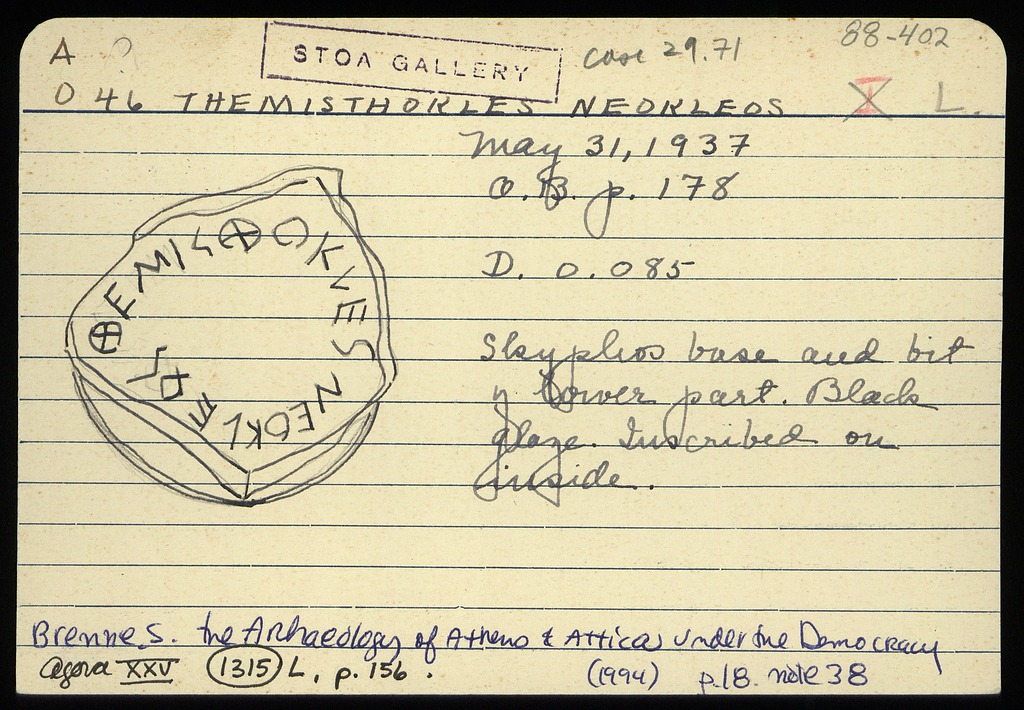 A ?
STOA GALLERY
case 29.71
88-402
O 46 THEMISTHOKLES NEOKLEOS
I L.
May 31, 1937
O.B. p. 178
D. 0.085
Skyphos base and bit
of lower part. Black
glaze. Inscribed on
inside.
⊕EMIS⊕OKLES NEOKLEOS
Brenne S. the Archaeology of Athens & Attica under the Democracy
(1994) p.18 note 38
Agora XXV 1315 L, p. 156.